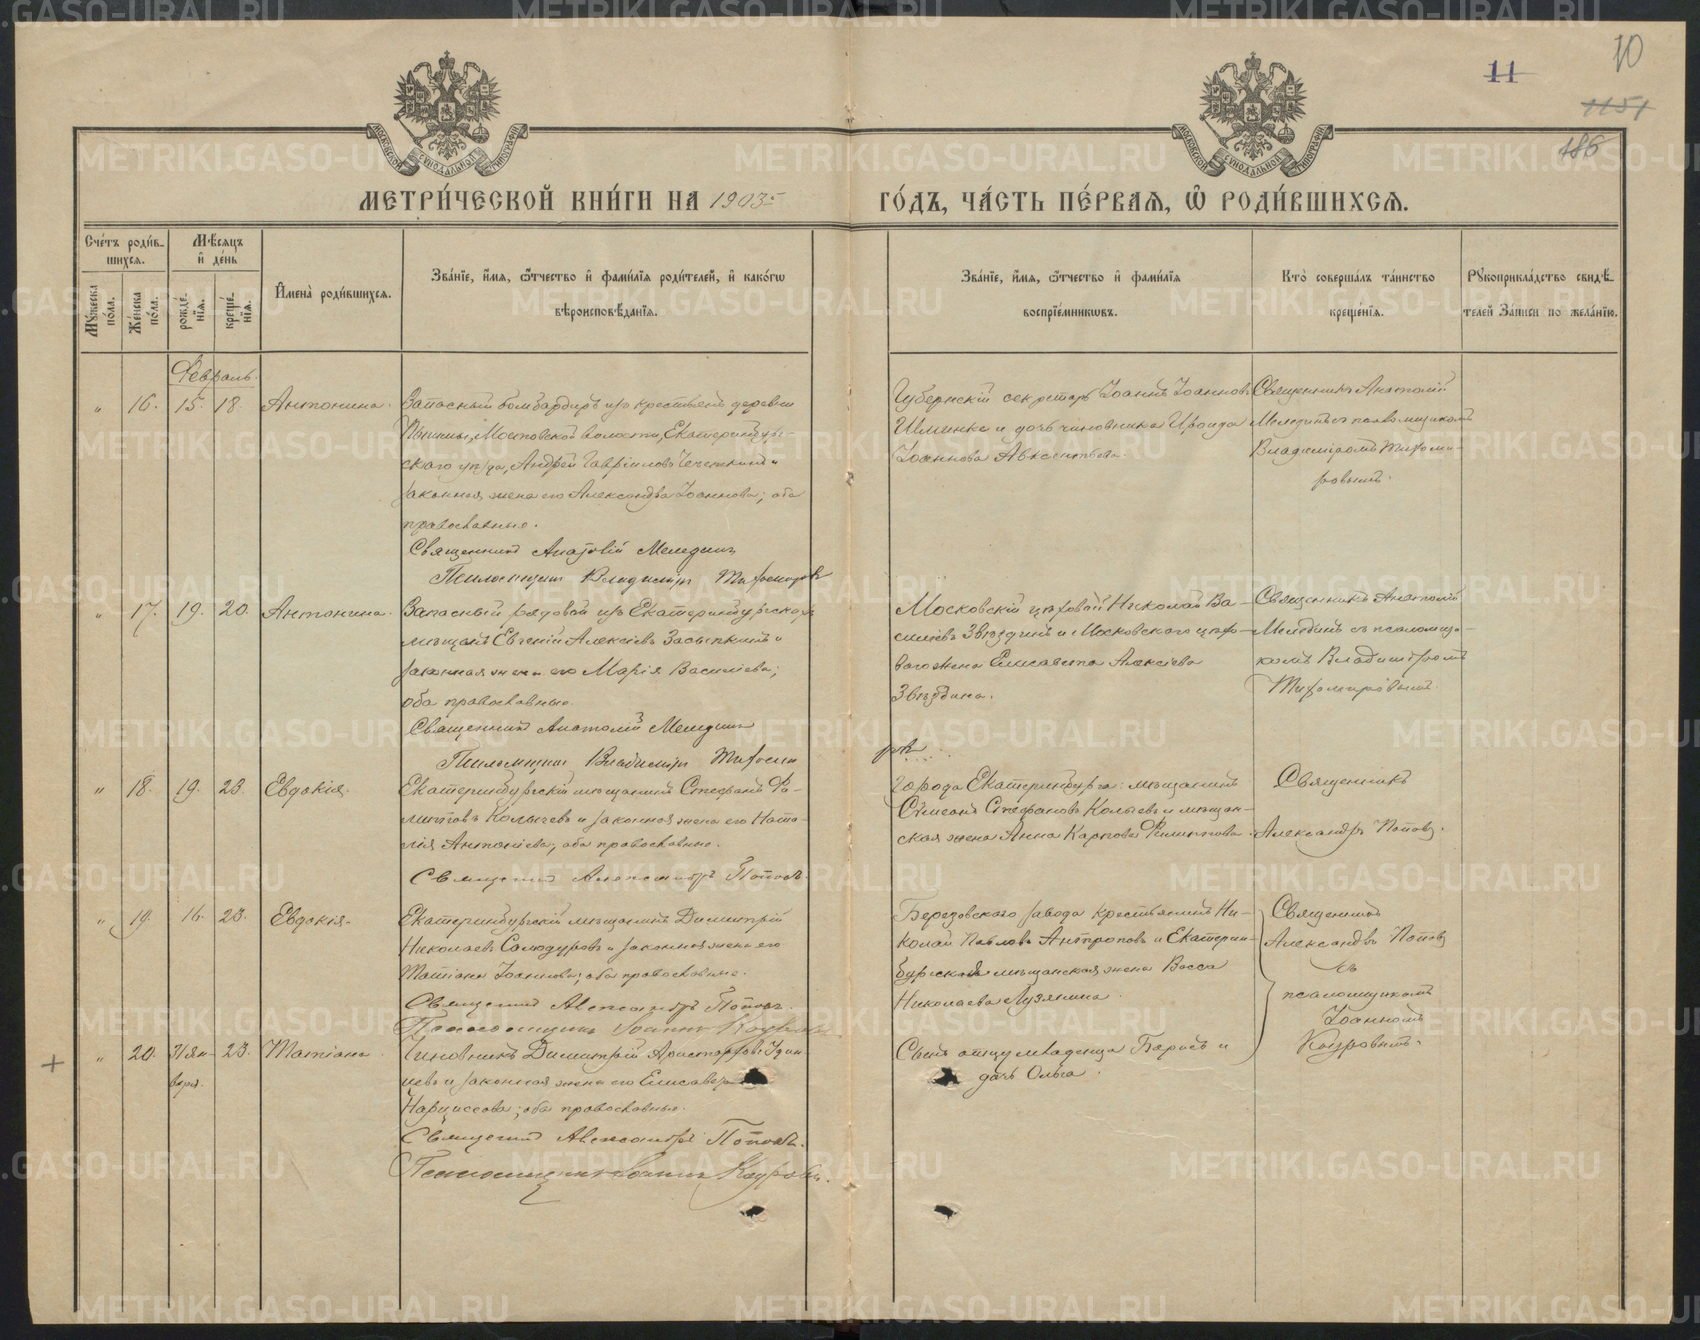 10
11
1151
186
МОСКОВСКОЙ СѴНОДАЛЬНОЙ ТИПОГРАФІИ
МОСКОВСКОЙ СѴНОДАЛЬНОЙ ТИПОГРАФІИ
МЕТРИ́ЧЕСКОЙ КНИ́ГИ НА 1903й
ГО́ДЪ, ЧА́СТЬ ПЕ́РВАѦ, Ѽ РОДИ́ВШИХСѦ.
Сче́тъ роди́в-
шихсѧ.
Мѣ́сѧцъ
и҆ де́нь
Мꙋ́жеска по́ла.
Же́нска по́ла.
рожде́-
нїѧ.
креще́-
нїѧ.
И҆мена̀ роди́вшихсѧ.
Зва́нїе, и҆́мѧ, ѻ҆́тчество и҆ фами́лїѧ роди́телей, и҆ како́гѡ
вѣроисповѣ́данїѧ.
Зва́нїе, и҆́мѧ, ѻ҆́тчество и҆ фами́лїѧ
воспрїе́мникѡвъ.
Кто̀ соверша́лъ та́инство
креще́нїѧ.
Рꙋкоприкла́дство свидѣ́-
телей за́писи по жела́нїю.
Февраль.
" 16. 15. 18. Антонина.
Запасный бомбардиръ изъ крестьянъ деревни
Пышмы, Мостовской волости, Екатеринбург-
скаго уѣзда, Андрей Гавріиловъ и
законная жена его Александра Іоаннова; оба
православные.
Священникъ Анатолій Меледин
Псаломщик Владиміръ Тихомиров
Губернскій секретарь Іоаннъ Іоанновъ
и дочь чиновника Ираида
Іоаннова Авксентьева.
Священникъ Анатолій
Меледин съ псаломщикомъ
Владиміромъ Тихоми-
ровымъ.
" 17. 19. 20. Антонина.
Запасный рядовой изъ Екатеринбургскихъ
мѣщанъ Евгеній Алексіевъ Засыпкинъ и
законная жена его Марія Василіева;
оба православные.
Священникъ Анатолій Меледин
Псаломщик Владиміръ Тихоми
ров
Московскій цеховой Николай Ва-
силіевъ Звѣздинъ и Московскаго цехо-
ваго жена Елисавета Алексіева
Звѣздина.
Священникъ Анатолій
Меледин съ псаломщи-
комъ Владиміромъ
Тихомировымъ.
" 18. 19. 23. Евдокія.
Екатеринбургскій мѣщанинъ Стефанъ Фи-
липповъ Колычевъ и законная жена его Ната-
лія Антоніева; оба православные.
Священникъ Александръ Поповъ.
города Екатеринбурга: мѣщанинъ
Симеонъ Стефановъ Колычевъ и мѣщан-
ская жена Анна Карпова Филиппова.
Священникъ
Александръ Поповъ.
" 19. 16. 23. Евдокія.
Екатеринбургскій мѣщанинъ Димитрій
Николаевъ Самодуровъ и законная жена его
Татіана Іоаннова; оба православные.
Священникъ Александръ Поповъ.
Псаломщикъ Іоаннъ Козровъ
Березовскаго завода крестьянинъ Ни-
колай Павловъ Антроповъ и Екатерин-
бургская мѣщанская жена Васса
Николаева Лузянина.
Священникъ
Александръ Поповъ
съ
псаломщикомъ
Іоанномъ
" 20. Янв 23. Татіана.
варя.
Чиновникъ Димитрій Аристарховъ Удин
цевъ и законная жена его Елисавета
Нарциссова; оба православные.
Священникъ Александръ Поповъ.
Псаломщикъ Іоаннъ
Сынъ отцу младенца Борисъ и
дочь Ольга.
METRIKI.GASO-URAL.RU